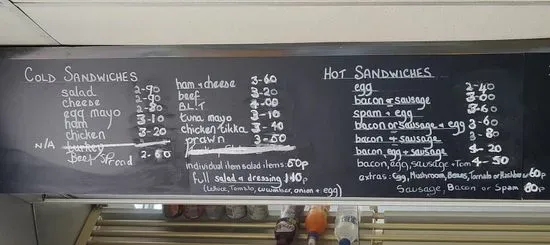 COLD SANDWICHES
salad 2-90
cheese 2-90
egg mayo 2-80
ham 3-10
chicken 3-20
N/A turkey
Beef Spread 2-60
ham + cheese 3-60
beef 3-20
B.L.T 4-00
tuna mayo 3-10
chicken tikka 3-40
prawn 3-50
individual item salad items: 50p
full salad + dressing
(Lettuce, Tomato, cucumber, onion + egg)
HOT SANDWICHES
egg 2-40
bacon or sausage 3-00
spam + egg 3-60
bacon or sausage + egg 3-60
bacon + sausage 3-80
bacon, egg + sausage 4-20
bacon, egg, sausage + Tom 4-50
extras: Egg, Mushroom, Beans, Tomato or Hashbrown 60p
Sausage, Bacon or Spam 80p